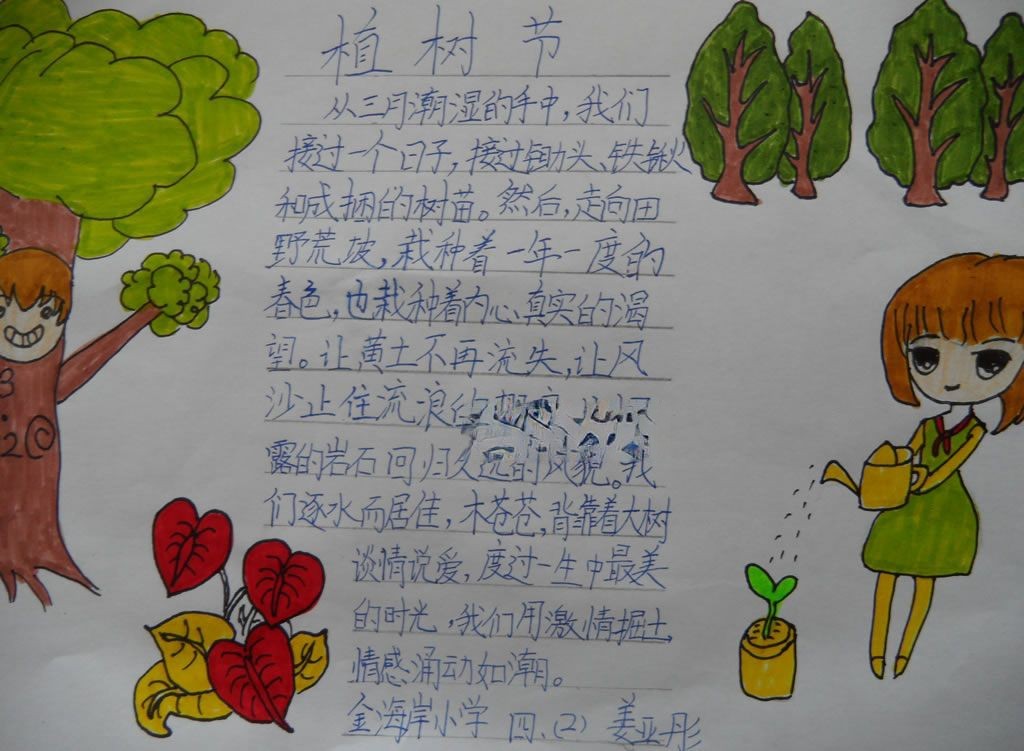 植树节
从三月潮湿的手中，我们
接过一个日子，接过锄头、铁锹
和成捆的树苗。然后，走向田
野荒坡，栽种着一年一度的
春色，也栽种着内心真实的渴
望。让黄土不再流失，让风
沙止住流浪的
露的岩石回归久远的风貌。我
们逐水而居住，木苍苍，背靠着大树
谈情说爱，度过一生中最美
的时光，我们用激情掘土，
情感涌动如潮。
金海岸小学 四.(2) 姜亚彤
3
12